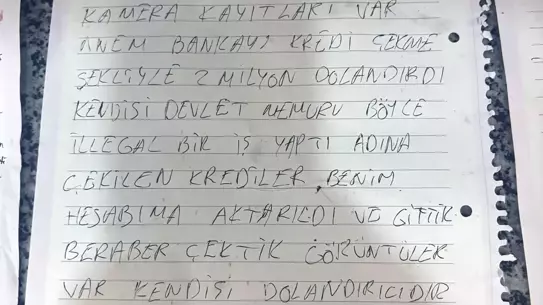 KAMERA KAYITLARI VAR
ANEM BANKAYI KREDİ ÇEKME
ŞEKLİYLE 2 MİLYON DOLANDIRDI
KENDİSİ DEVLET MEMURU BÖYLE
İLLEGAL BİR İŞ YAPTI ADINA
ÇEKİLEN KREDİLER BENİM
HESABIMA AKTARILDI VE GİTTİK
BERABER ÇEKTİK GÖRÜNTÜLER
VAR KENDİSİ DOLANDIRICIDIR